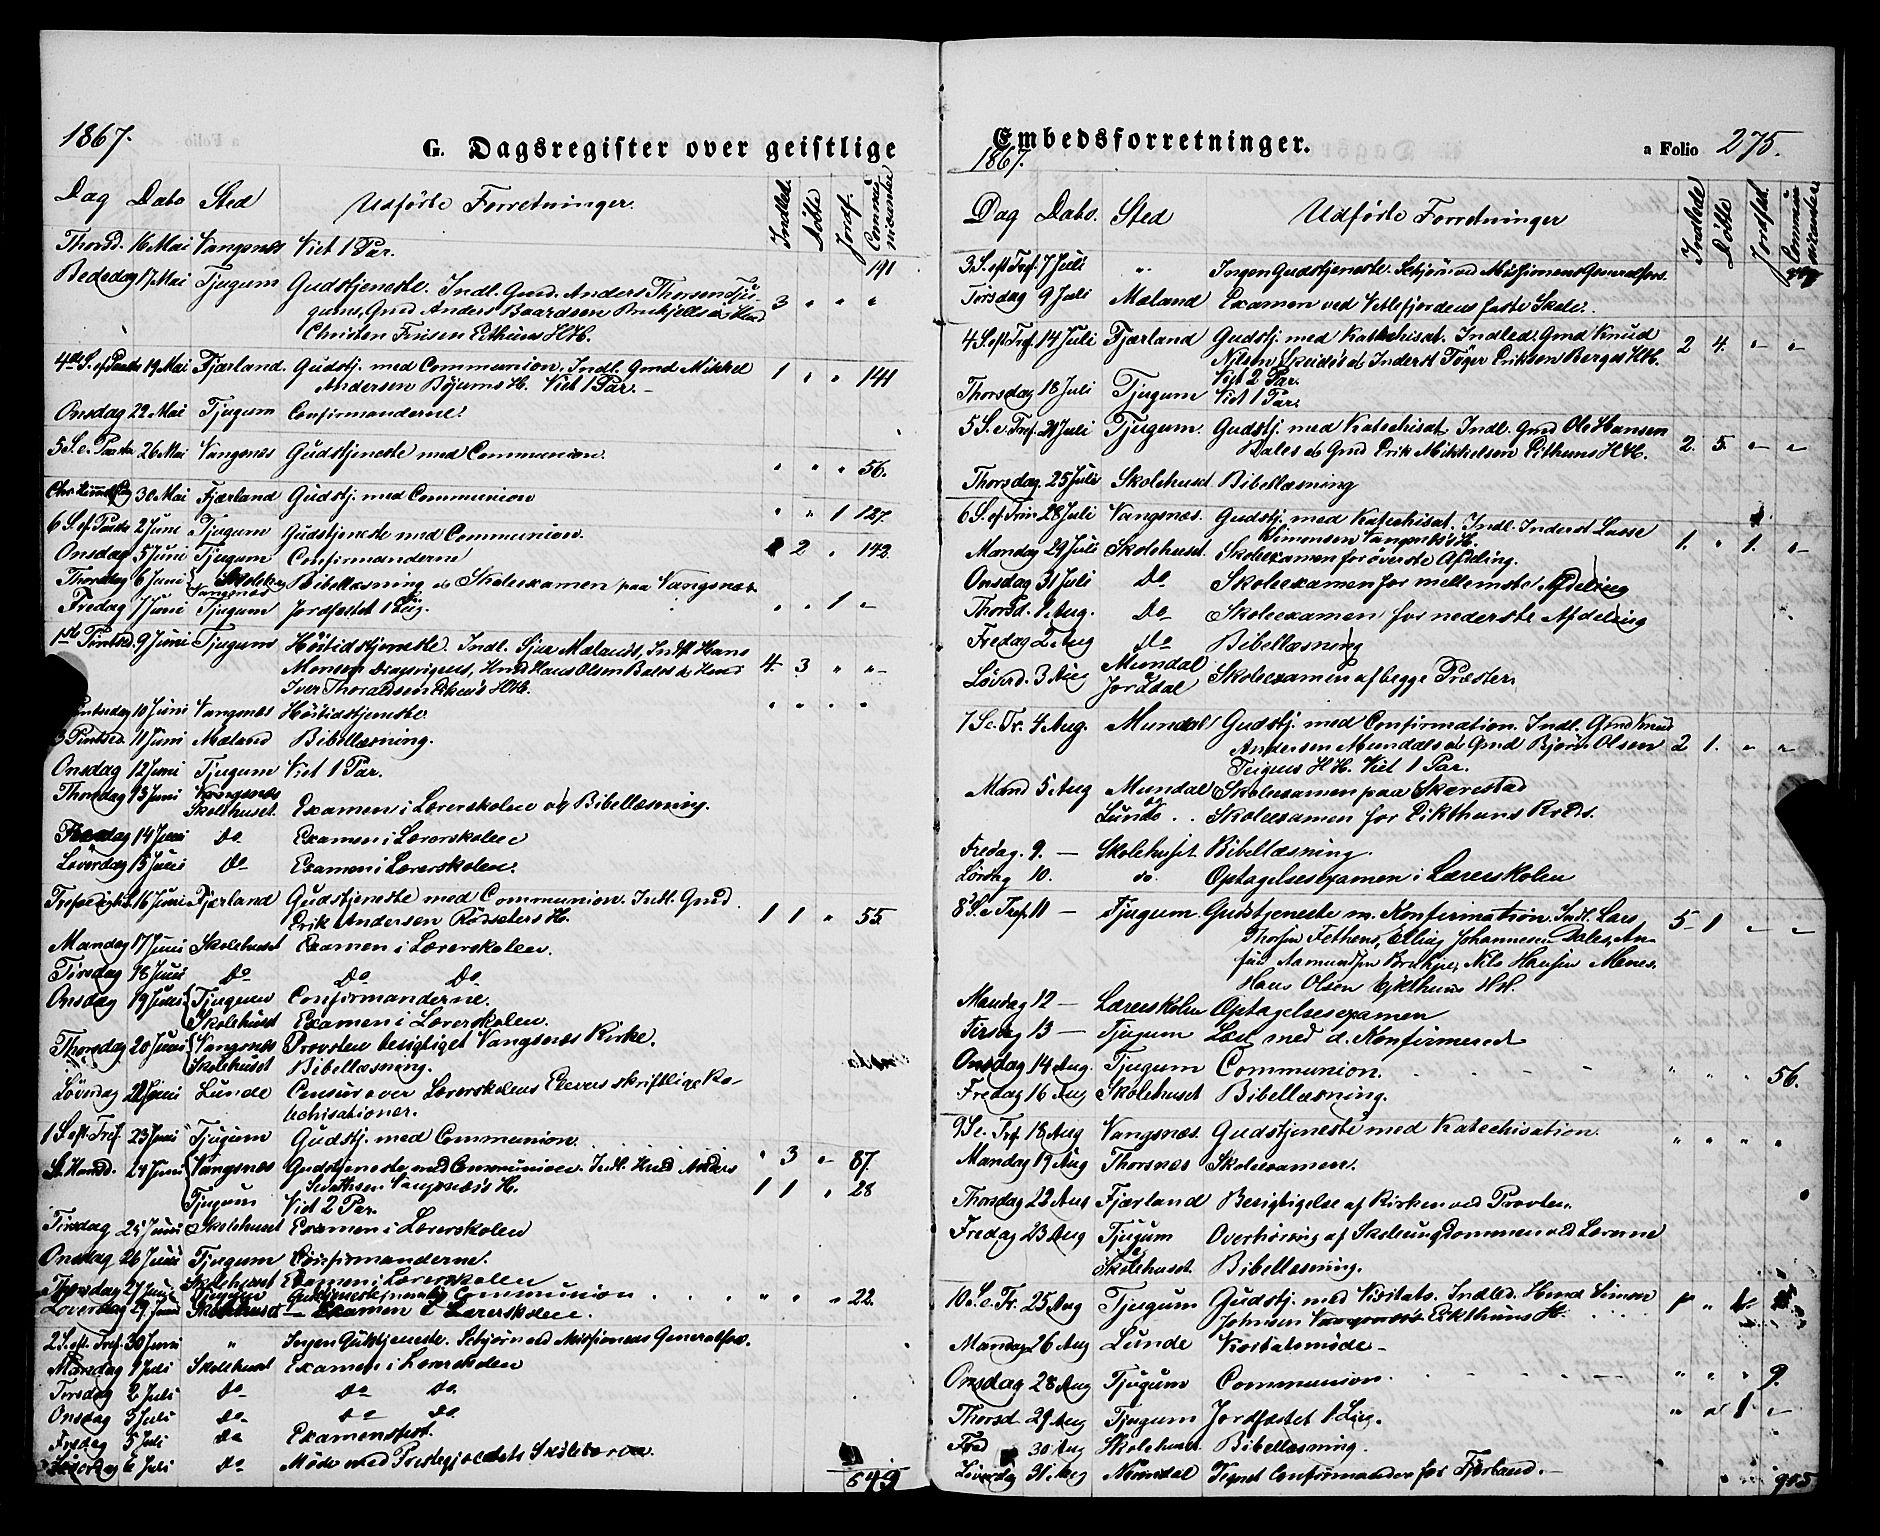 1867.
G. Dagsregister over geistlige
Dag Dato Sted Udførte Forretninger. Indled. Døbte Jordf. Communicerende
Thorsd. 16 Mai Vangsnæs Viet 1 Par. 191
Bededag 17 Mai Tjugum Gudstjeneste. Indl. Gmd. Anders Thorsen Tju-
gums, Gmd Anders Baardsen 3 " " "
Christen H.H.
4de S. ef Paaske 19 Mai Fjærland. Gudstj. med Communion. Indl. Gmd Mikkel
Andersen Bøyums H. Viet 1 Par. 1 " " 141
Onsdag 22 Mai Tjugum Confirmanderne.
5 S. e. Paaske 26 Mai Vangsnæs Gudstjeneste med Communion. " " " 56.
30 Mai Fjærland Gudstj. med Communion " " 1 127.
6 S. ef. Paaske 2 Juni Tjugum Gudstjeneste med Communion. 2 " 142
Onsdag 5 Juni Tjugum Confirmanderne
Thorsdag 6 Juni Vangsnæs Bibellæsning Skoleexamen paa Vangsnæs
Fredag 7 Juni Tjugum Jordfæstet 1 Liig. " " 1 "
1ste Pintsed 9 Juni Tjugum Høitidstjeneste. Indl. Hans
Monsen Hans Olsen 4. 3 " "
Iver Thoraldsen H.H.
10 Juni Vangsnæs Høitidstjeneste. " " " "
3 Pintsed. 11 Juni Mæland Bibellæsning.
Onsdag 12 Juni Tjugum Viet 1 Par.
Thorsdag 13 Juni Vangsnæs
Skolehuset. Examen i Lærerskolen og Bibellæsning.
Fredag 14 Juni Do Examen i Lærerskolen
Løverdag 15 Juli Do Examen i Lærerskolen.
16 Juni Fjærland Gudstjeneste med Communion. Indl. Gmd
Erik Andersen Rødseters H. 1 1 " 55.
Mandag 17 Juni Skolehuset Examen i Lærerskolen.
Tirsdag 18 Juni Do Do Do
Onsdag 19 Juni Tjugum Confirmanderne.
Skolehuset Examen i Lærerskolen.
Thorsdag 20 Juni Vangsnæs Provsten besigtiget Vangsnæs Kirke.
Skolehuset Bibellæsning.
Løverdag 22 Juni Lunde Censur over Lærerskolens Elevers skriftlige Ka-
techisationer.
1 S. eft. Tref. 23 Juni Tjugum Gudstj. med Communion. " 3 " 87.
St. Hansd. 24 Juni Vangsnæs Gudstjeneste med Communion. Indl. Anders
Vangsnæs's H. 1 1 " 28
Tjugum Viet 2 Par.
Tirsdag 25 Juni Skolehuset Examen i Lærerskolen
Onsdag 26 Juni Tjugum Confirmanderne.
Thorsdag 27 Juni Skolehuset Examen i Lærerskolen
Tjugum Communion " " " 22.
Løverdag 29 Juni Skolehuset Examen i Lærerskolen.
2 S. eft. Tref. 30 Juni " Ingen Gudstjeneste. ved Missionens Generalfors.
Mandag 1 Juli Skolehuset Examen i Lærerskolen
Tirsdag 2 Juli Do Do Do.
Onsdag 3 Juli Do Do Do.
Fredag 5 Juli Do Examensfest.
Løverdag 6 Juli Do. Møde med Prestegjældets Skolelærere.
649
Embedsforretninger.
1867.
a Folio 275.
Dag Dato. Sted Udførte Forretninger Indledede Døbte Jordfæst. Communicerende
3 S. eft Tref. 7 Juli " Ingen Gudstjeneste. ved Missionens Generalfors.
Tirsdag 9 Juli Mæland Examen ved Vetlefjordens faste Skole.
4 S. eft Tref. 14 Juli Fjærland Gudstj. med Katechisat. Indled. Gmd Knud
Nilsen Inderst Eriksen Berges H.H. 2 4. " "
Viet 2 Par.
Thorsdag 18 Juli Tjugum Viet 1 Par.
5 S. e. Tref. 21 Juli Tjugum. Gudstj. med Katechisat. Indl. Gmd Ole Hansen
Dales Gmd Erik Mikkelsen Eithuns H.H. 2. 5. " "
Thorsdag. 25 Juli Skolehuset Bibellæsning
6 S. ef. Trin 28 Juli Vangsnæs. Gudstj. med Katechisat. Indl. Inderst Lasse
Simonsen Vangsnæs's H. 1. " 1. "
Mandag 29 Juli Skolehuset. Skoleexamen for øverste Afdeling.
Onsdag 31 Juli Do Skoleexamen for mellemste Afdeling
Thorsd. 1 Aug. Do Skoleexamen for nederste Afdeling
Fredag 2 Aug Do Bibellæsning
Løverd. 3 Aug Mundal
Jorddal Skoleexamen af begge Præster.
7 S. e. Tr. 4 Aug. Mundal Gudstj. med Confirmation. Indl. Gmd Knud
Andersen Mundals Gmd Bjørn Olsen 2 1. " "
Teigens H.H. Viet 1 Par.
Mand 5 Aug Mundal Skoleexamen paa Skarestad
Lunde Skoleexamen for Eikthuns Kreds.
Fredag. 9. — Skolehuset Bibellæsning.
Lørdag 10. do. Optagelsesexamen i Lærerskolen
8 S. e Tref. 11 — Tjugum. Gudstjeneste m. Konfirmation. Indl. Lars
Thorsen Fethens, Elling Johannesen Dales, An-
Nils Hansen 5 1 " "
Hans Olsen Ejkthuns H.H.
Mandag 12 — Lærerskolen Optagelsesexamen
Tirsdag 13 — Tjugum Læst med d. Konfirmerede
Onsdag 14 Aug. Tjugum Communion. " " " 56.
Fredag 16 Aug Skolehuset Bibellæsning.
9 S. e. Tref. 18 Aug Vangsnæs. Gudstjeneste med Katechisation. " " " "
Mandag 19 Aug Thorsnæs Skoleexamen.
Thorsdag 22 Aug Fjærland Besigtigelse af Kirken ved Provsten.
Fredag 23 Aug Tjugum Overhøring af Skoleungdommen ved Lærerne
Skolehuset. Bibellæsning.
10 S. e. Tr. 25 Aug Tjugum Gudstj. med Visitats. Indled. Simon
Johnsen H.
Mandag 26 Aug Lunde
Onsdag 28 Aug Tjugum Communion. " " " 9.
Thorsd 29 Aug Tjugum Jordfæstet 1 Liig. " " 1. "
Fred 30 Aug Skolehuset Bibellæsning.
Løverdag 31 Aug Mundal Confirmander for Fjærland.